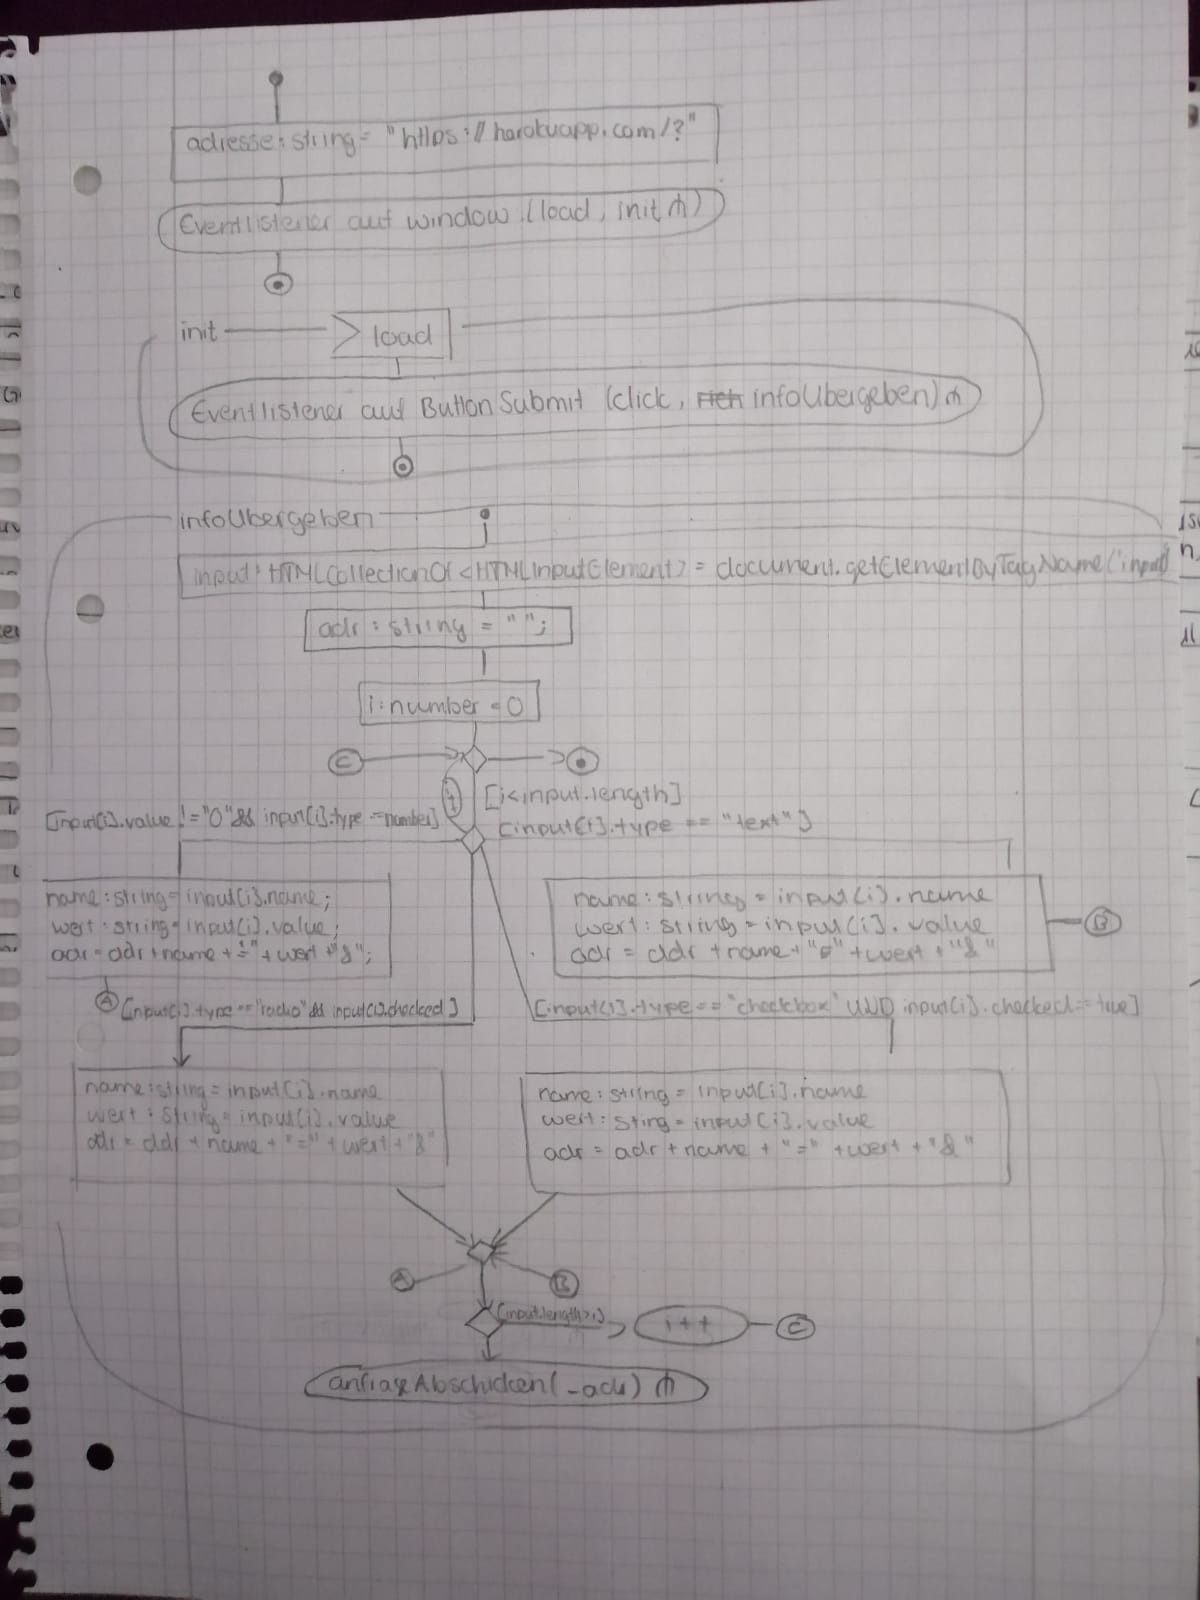 adresse: string = "https://herokuapp.com/?"
Eventlistener auf window (load, init)
init
load
Eventlistener auf Button Submit (click, infoUbergeben)
infoUbergeben
input: HTMLCollectionOf <HTMLInputElement> = document.getElementByTagName('input')
adr : string = " ";
i: number = 0
C
[i<input.length]
[input(i).value != "0" && input(i).type == number]
[input(i).type == "text"]
name: string = input(i).name;
wert: string = input(i).value;
adr = adr + name + "=" + wert + "&";
name: string = input(i).name
wert: string = input(i).value
adr = adr + name + "=" + wert + "&"
B
A
[input(i).type == "radio" && input(i).checked]
[input(i).type == "checkbox" UND input(i).checked == true]
name: string = input(i).name
wert : string = input(i).value
adr = adr + name + "=" + wert + "&"
name: string = input(i).name
wert: sting = input(i).value
adr = adr + name + "=" + wert + "&"
A
B
[input.length>i]
i++
C
anfrageAbschicken(_adr)